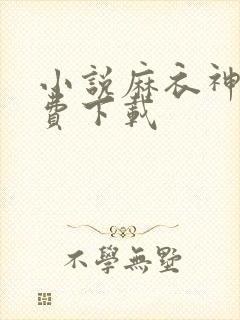 小說麻衣神
費下載
不學無墅